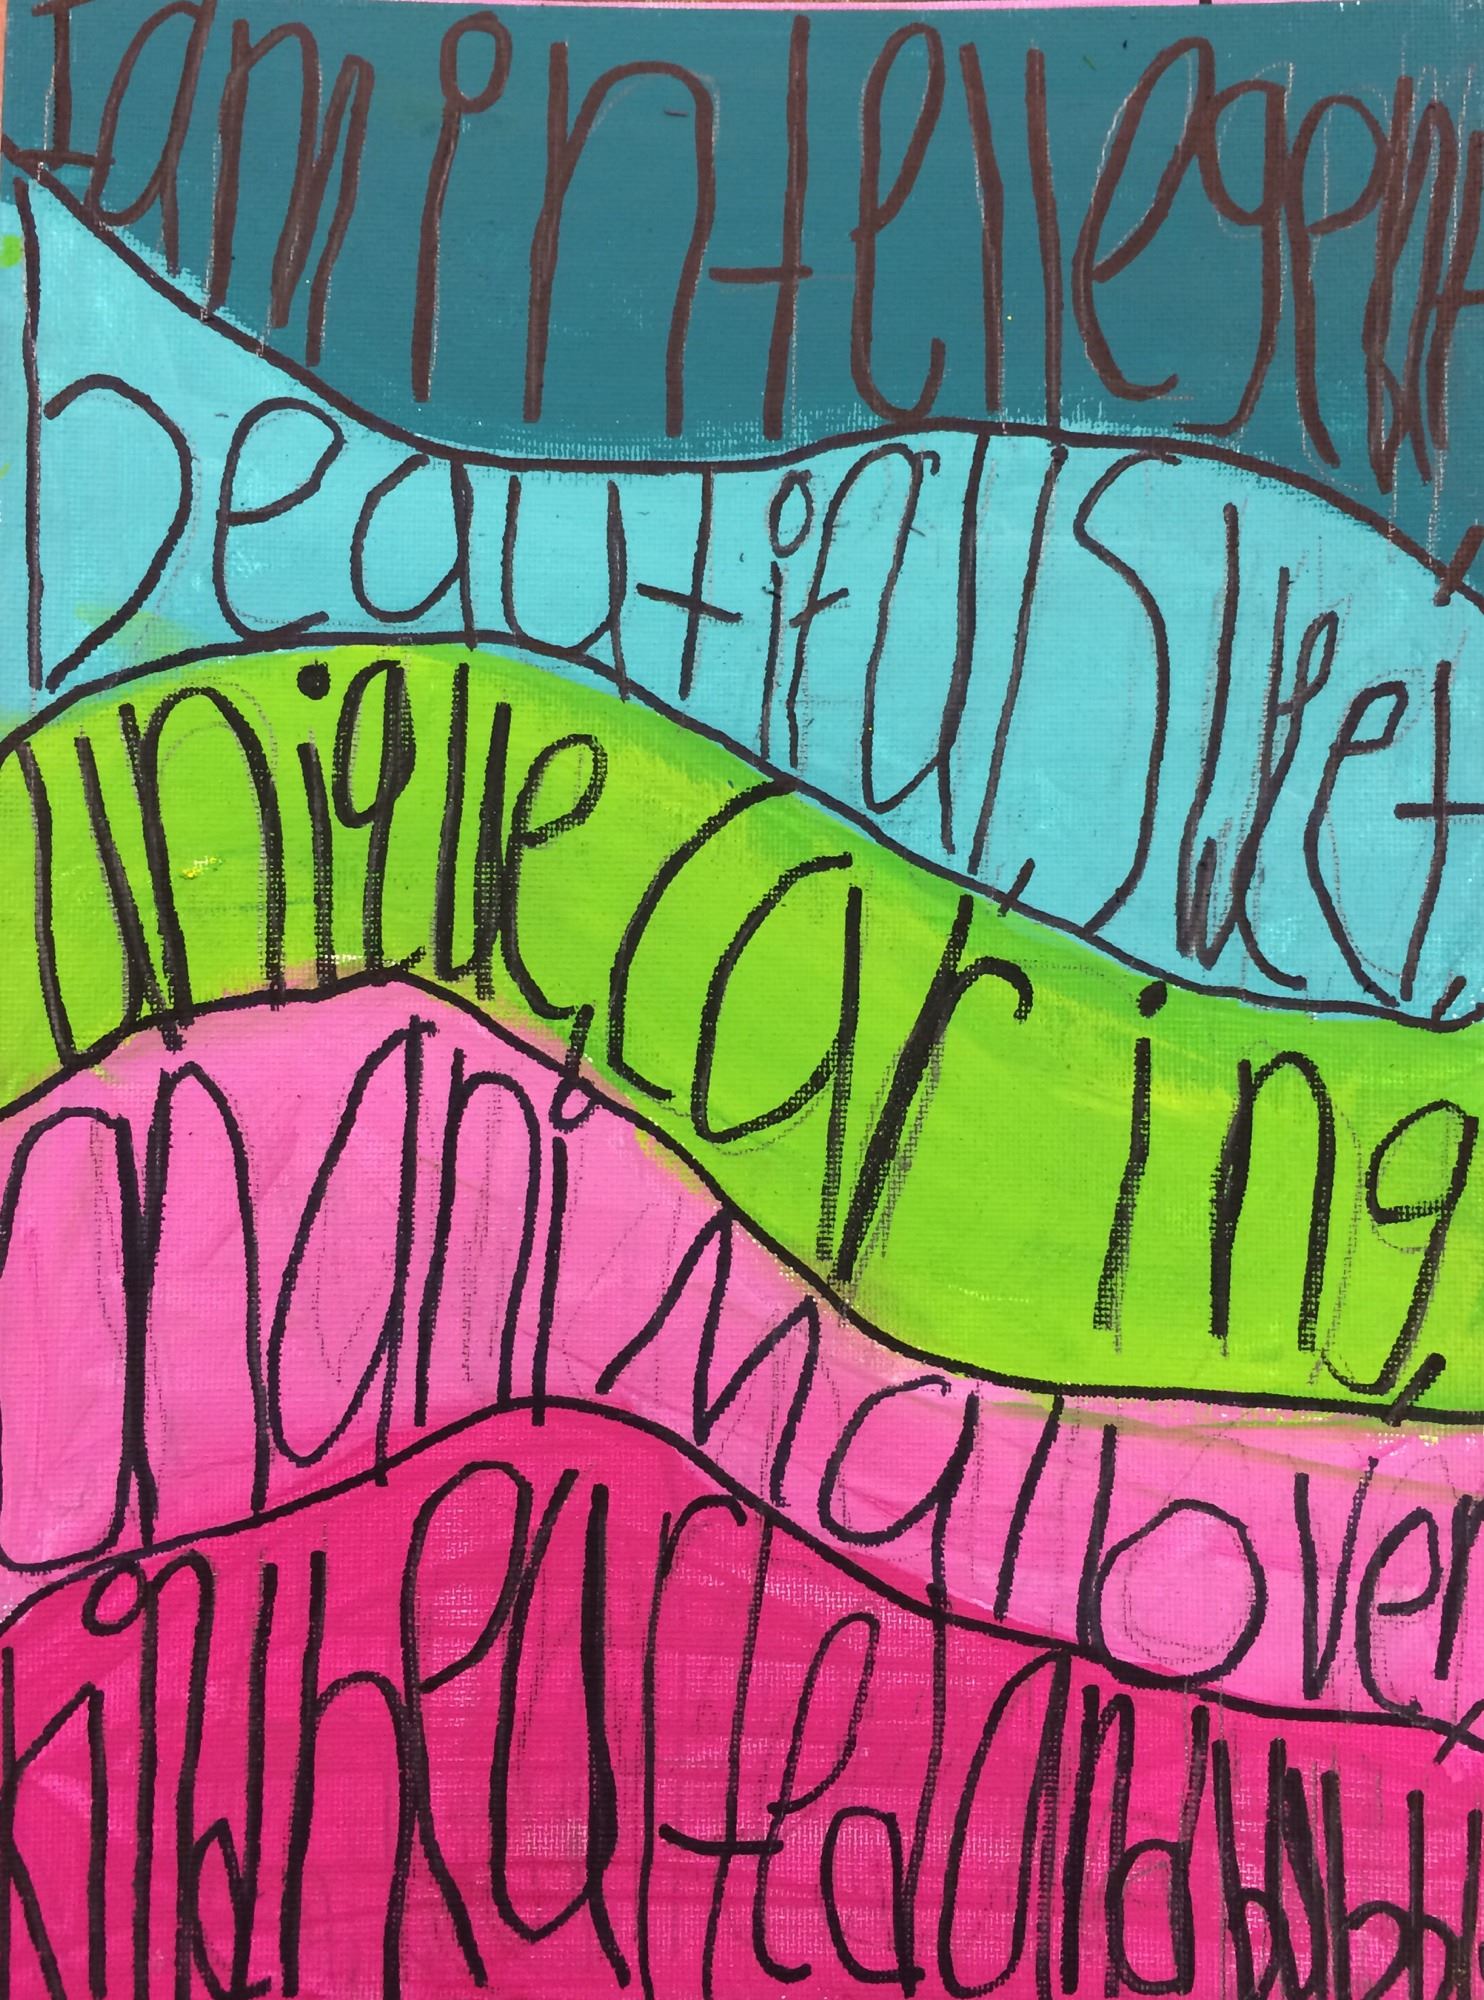 I am intellegent,
beautiful, Sweet,
unique, caring,
an animal lover,
kindhearted and bubbl